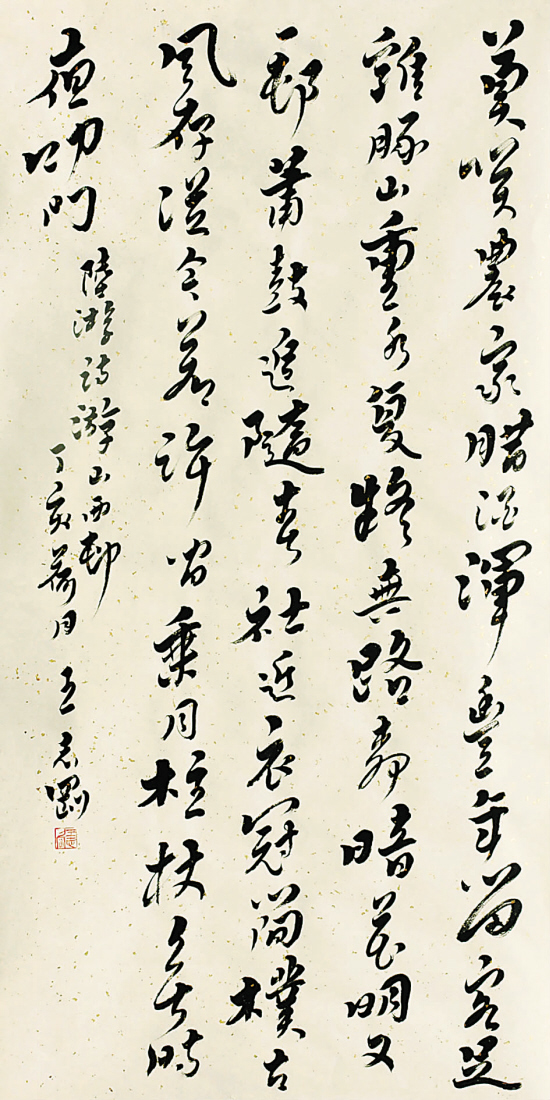 莫笑農家腊酒渾豐年留客足
雞豚山重水复疑無路柳暗花明又
一邨蕭鼓追隨春社近衣冠簡樸古
風存從今若許閑乘月柱杖無時
夜叩門
陸游詩游山西邨
丁亥荷月 王志剛